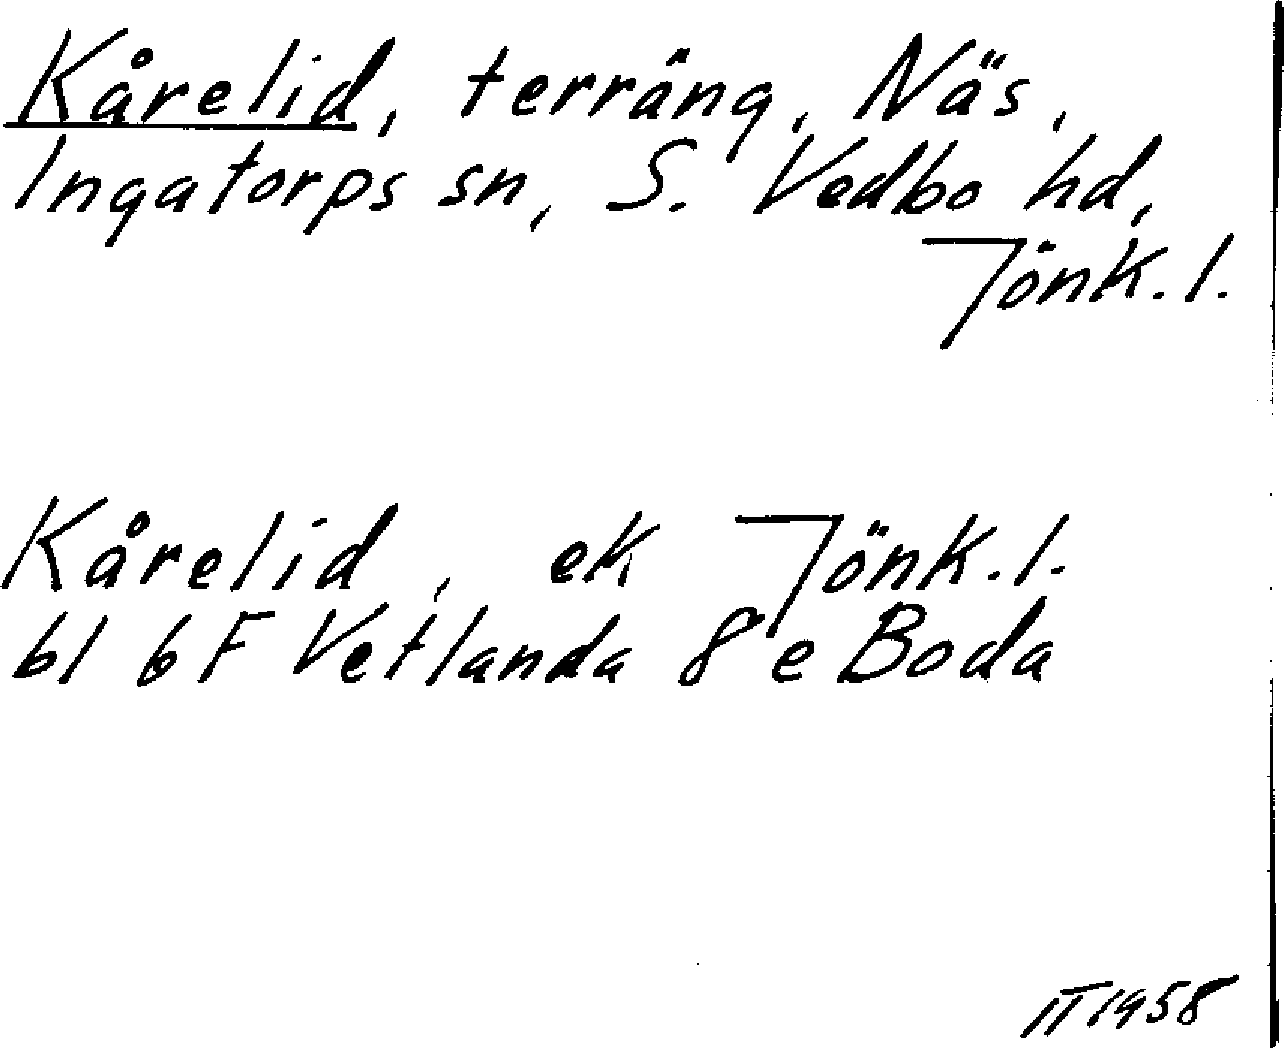 Kårelid, terräng, Näs,
Ingatorps sn, S. Vedbo hd,
Jönk. l.
Kårelid, ek Jönk. l.
bl 6F Vetlanda 8 e Boda
IT 1958